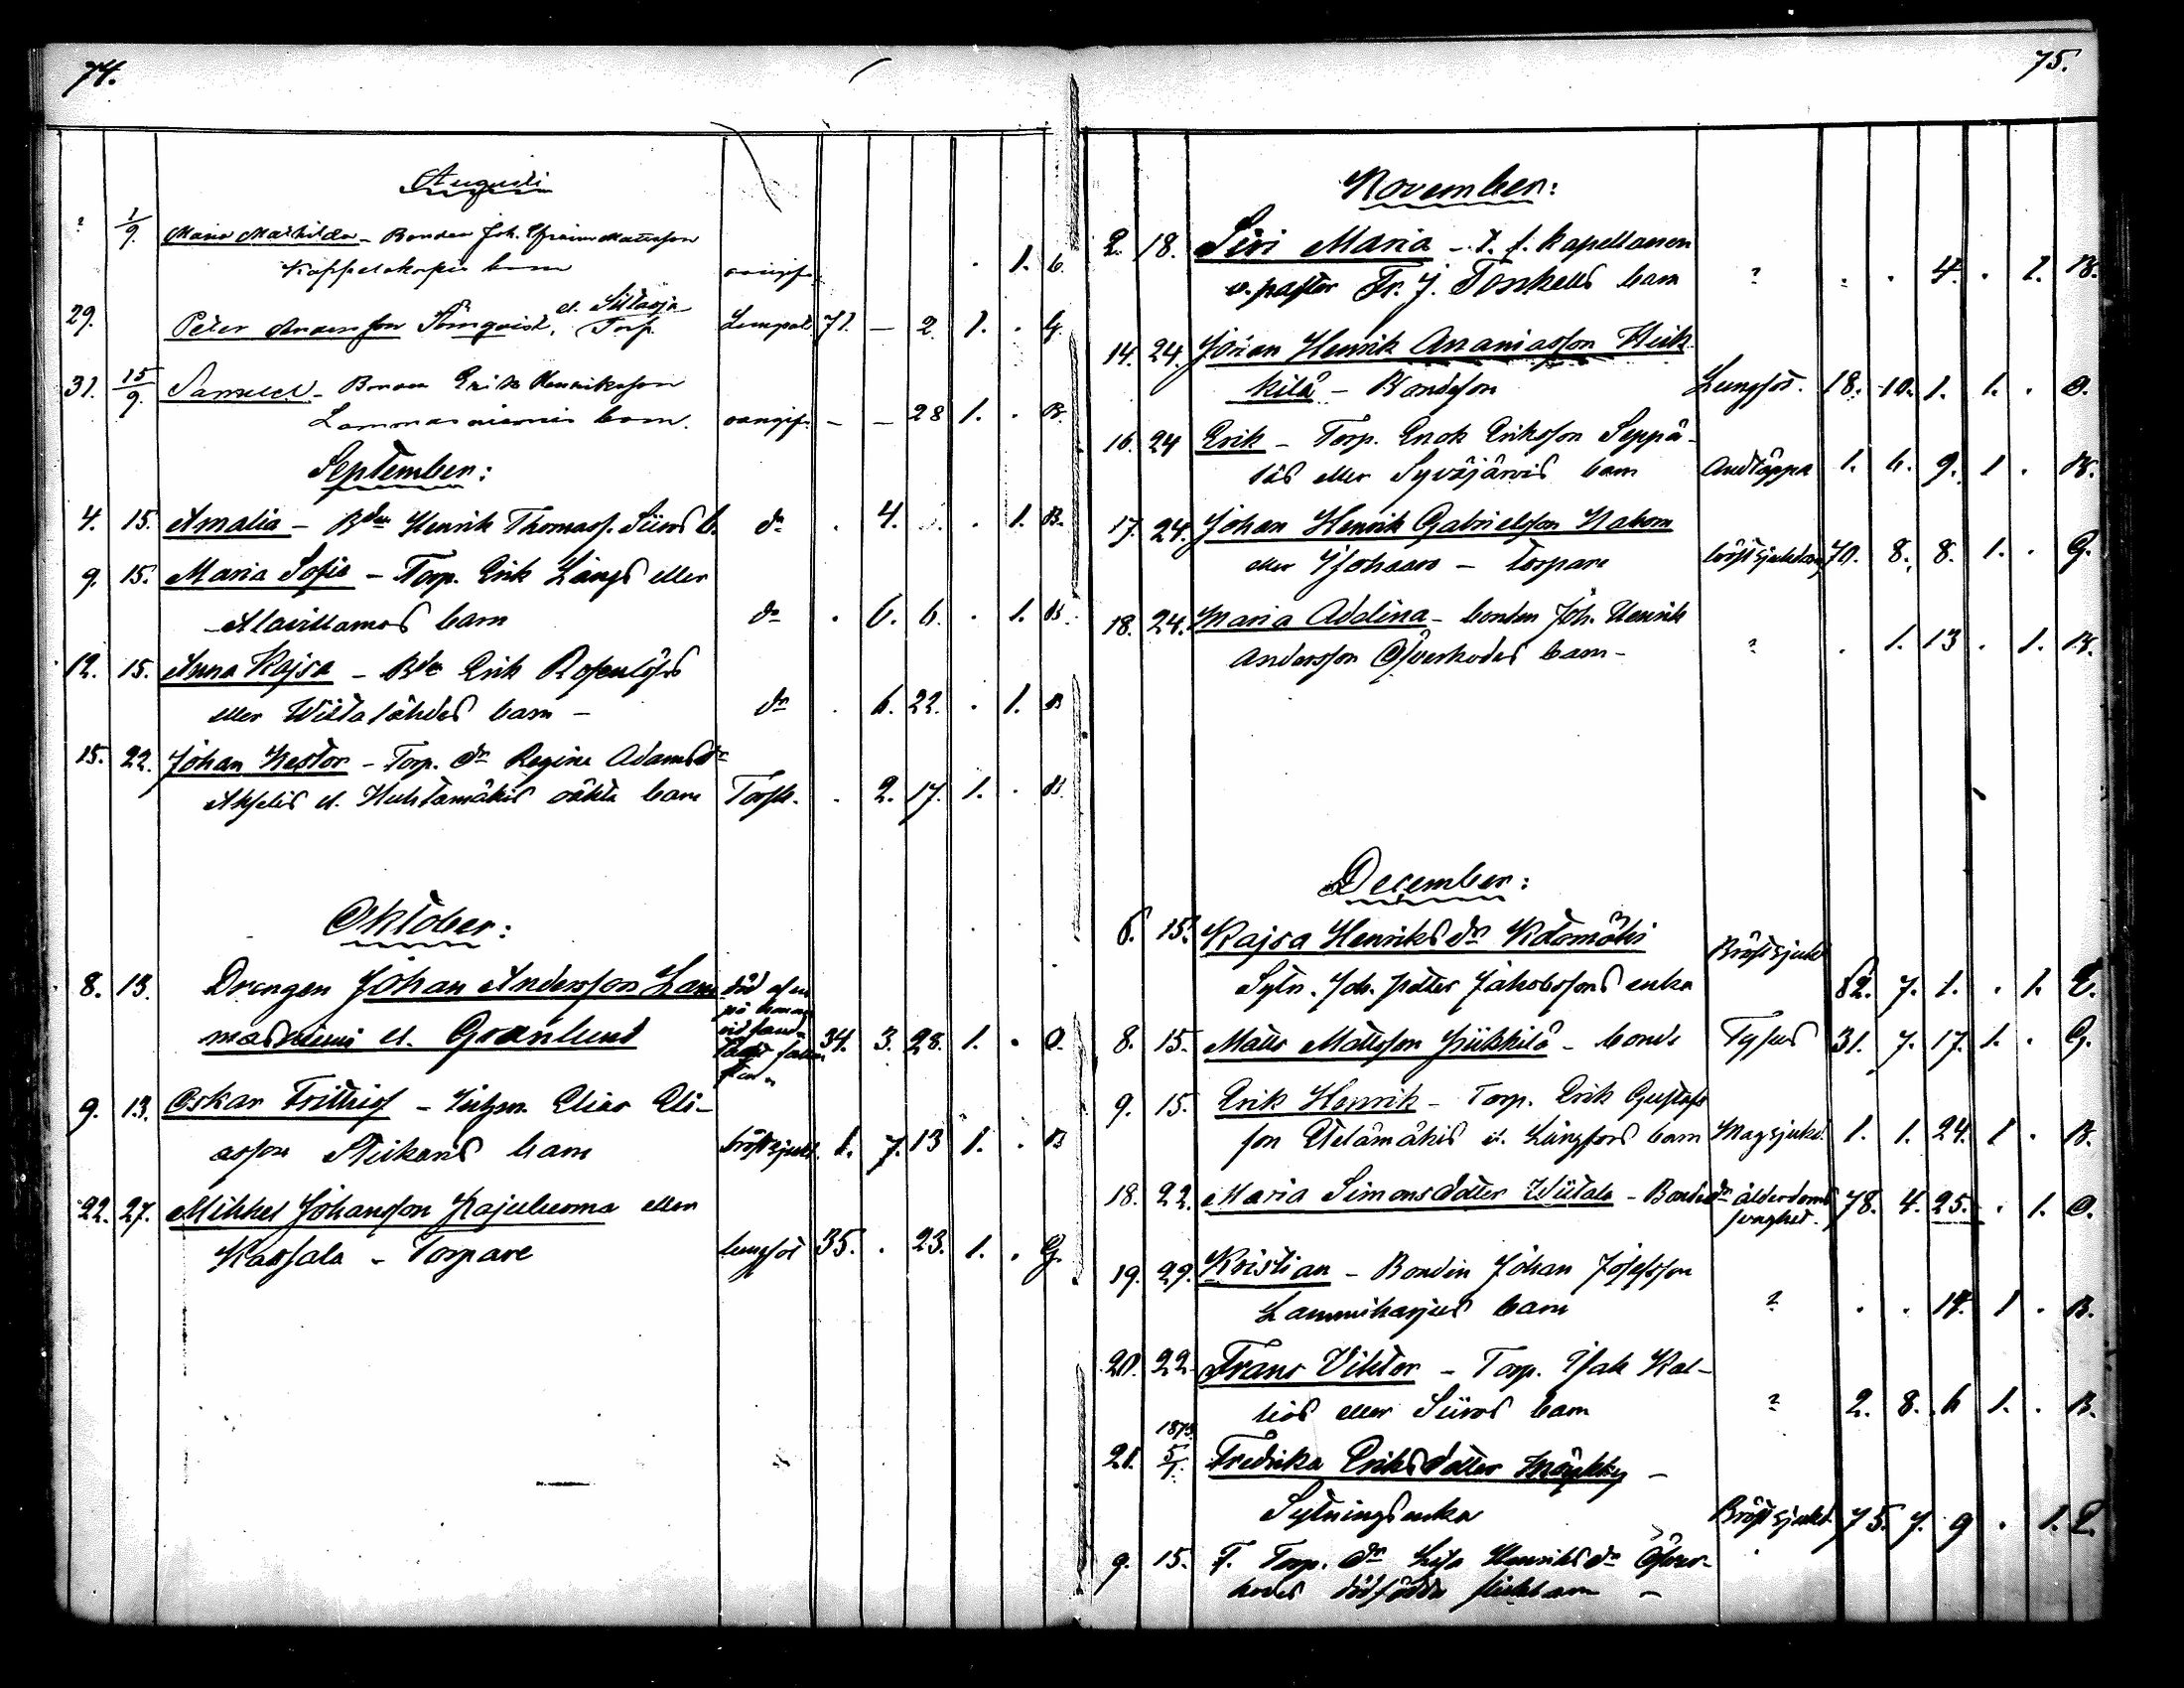 74.
Augusti
? 1/9. Maria Mathilda - Bonden Joh. Efraim Mattsson
Kappelskopis barn oangifv. . 1. b.
29. Peter Andersson Törnqvist, el. Siltasja Torp. Lungsot 71. — 2 1. . G.
31. 15/9 Samuel - Bonden Erik Henriksson
Lammasniemis barn. oangifv. — — 28 1. . B.
September:
4. 15. Amalia - Bden Henrik Thomass. Siiros b. do . 4. . . 1. B.
9. 15. Maria Sofia - Torp. Erik Långs eller
Alavillamos barn do . 6. 6. . 1. B.
12. 15. Anna Kajsa - Bde Erik Rosenlöfs
eller Wiitalähdes barn - do . 6. 22. . 1. B
15. 22. Johan Nestor - Torp. dr Regina Adamsdr
Akselis el. Huhtamäkis oäkta barn Torsk. . 2. 17. 1. . B.
Oktober:
8. 13. Drengen Johan Andersson Lam
masniemi el. Granlund död af en 34. 3. 28. 1. . O.
9. 13. Oskar Frithiof - Inhysn. Elias Eli-
asson Niikans barn bröstsjukd. 1. 7. 13 1. . B
22. 27. Mikkel Johansson Kajuluoma eller
Kassala - Torpare lungsot 35. . 23. 1. . G.
75.
November:
2. 18. Siri Maria - t. f. kapellanen
v. pastor Fr. J. Toskells barn ? . . 4. . 1. B.
14. 24. Johan Henrik Ananiasson Heik
kilä - Bondeson Lungsot. 18. 10. 1. 1. . O.
16. 24 Erik - Torp. Enok Eriksson Seppä-
läs eller Syväjärvis barn Andtäppa 1. 6. 9. 1 . B.
17. 24. Johan Henrik Gabrielsson
eller - torpare bröstsjukdom 70. 8. 8. 1. . G.
18. 24. Maria Adelina - bonden Joh. Henrik
Andersson Öfverkodes barn - ? . 1. 13 . 1. B.
December:
6. 15. Kajsa Henriksdr Katomäki
Sytn. Joh. Petter Jakobssons enka Bröstsjukd 82. 7. 1. . 1. E.
8. 15. Matts Mattsson Piikkilä - bonde Tyfus 31. 7. 17. 1. . G.
9. 15. Erik Henrik - Torp. Erik Gustafs
son Etelämäkis el. Långfors barn Magsjukd. 1. 1. 24. 1 . B.
18. 22. Maria Simonsdotter Wiitala - Bondedr ålderdoms
svaghet. 78. 4. 25. . 1. O.
19. 29. Kristian - Bonden Johan Josefsson
Lammiharjus barn ? . . 14. 1 . B.
20. 22. Frans Viktor - Torp. Isak Kal-
liös eller Siiros barn ? 2. 8. 6 1. . B.
21. 1873 5/1. Fredrika Eriksdotter Möykky -
Sytningsenka Bröstsjukd. 75. 7. 9 . 1. E.
9. 15. F. Torp. dr Lisa Henriksdr Öfver-
kodes dödfödda flickbarn -